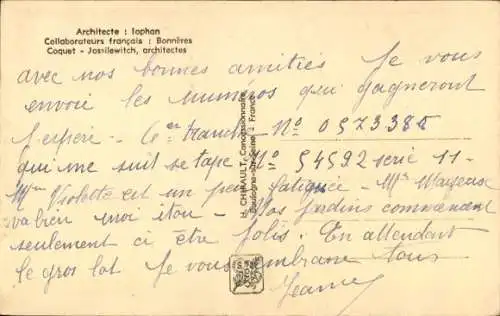 Architecte : Iophan
Collaborateurs français : Bonnères
Coquet - Jossilewitch, architectes
avec nos bonnes amitiés Je vous
envoie les numéros qui gagneront
J'espère - 6e tranche - No 0573388
qui me suit se tape No 54592 serie 11 -
Mme Violette est un peu fatiguée - Mr Mayeux
va bien moi itou - Vos jardins commencent
seulement ci être jolis. En attendant
le gros lot Je vous embrasse tous
Jeanne
H. CHIPAULT, Concessionnaire
Boulogne-sur-Seine - France